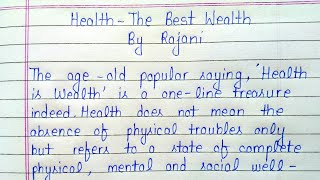 Health - The Best Wealth
By Rajani
The age-old popular saying, 'Health
is Wealth' is a one-line treasure
indeed. Health does not mean the
absence of physical troubles only
but refers to a state of complete
physical, mental and social well-